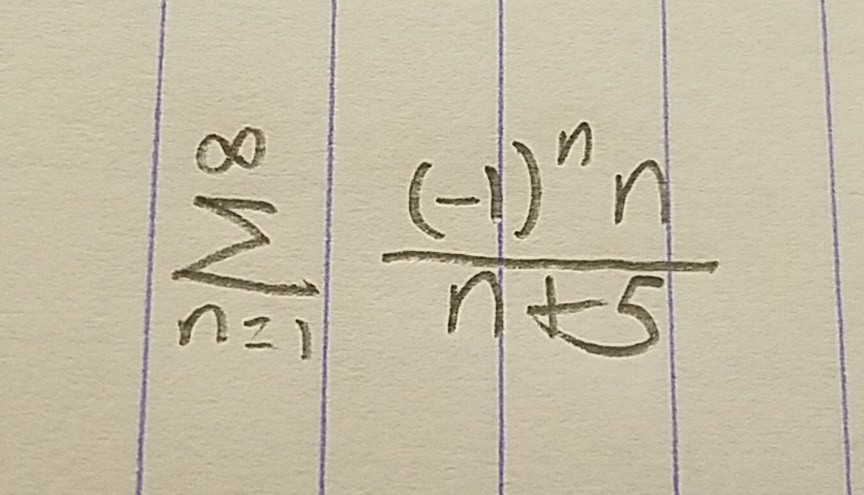 \sum_{n=1}^{\infty} \frac{(-1)^n n}{n+5}